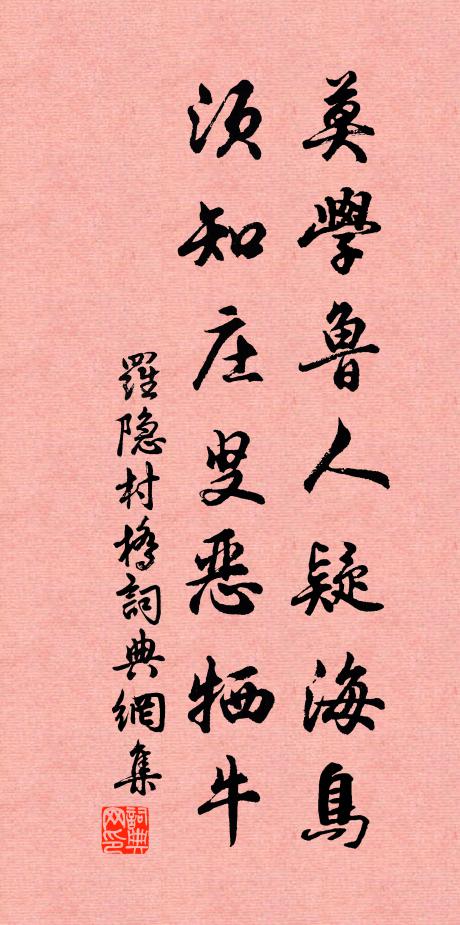 莫學魯人疑海鳥
須知庄叟惡牺牛
羅隐村橋詞典網集
詞典网印